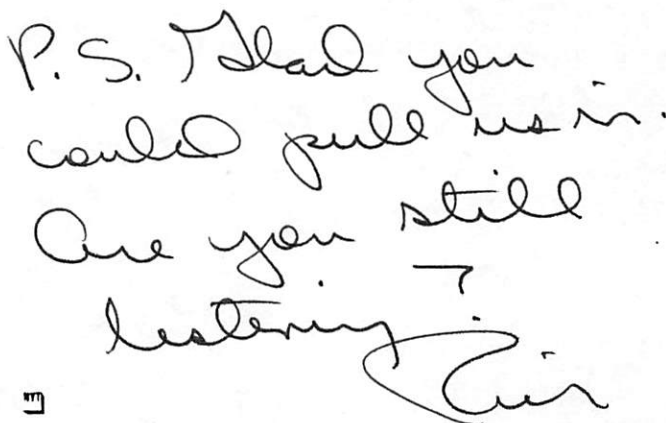 P.S. Glad you
could pull us in.
Are you still
listening?